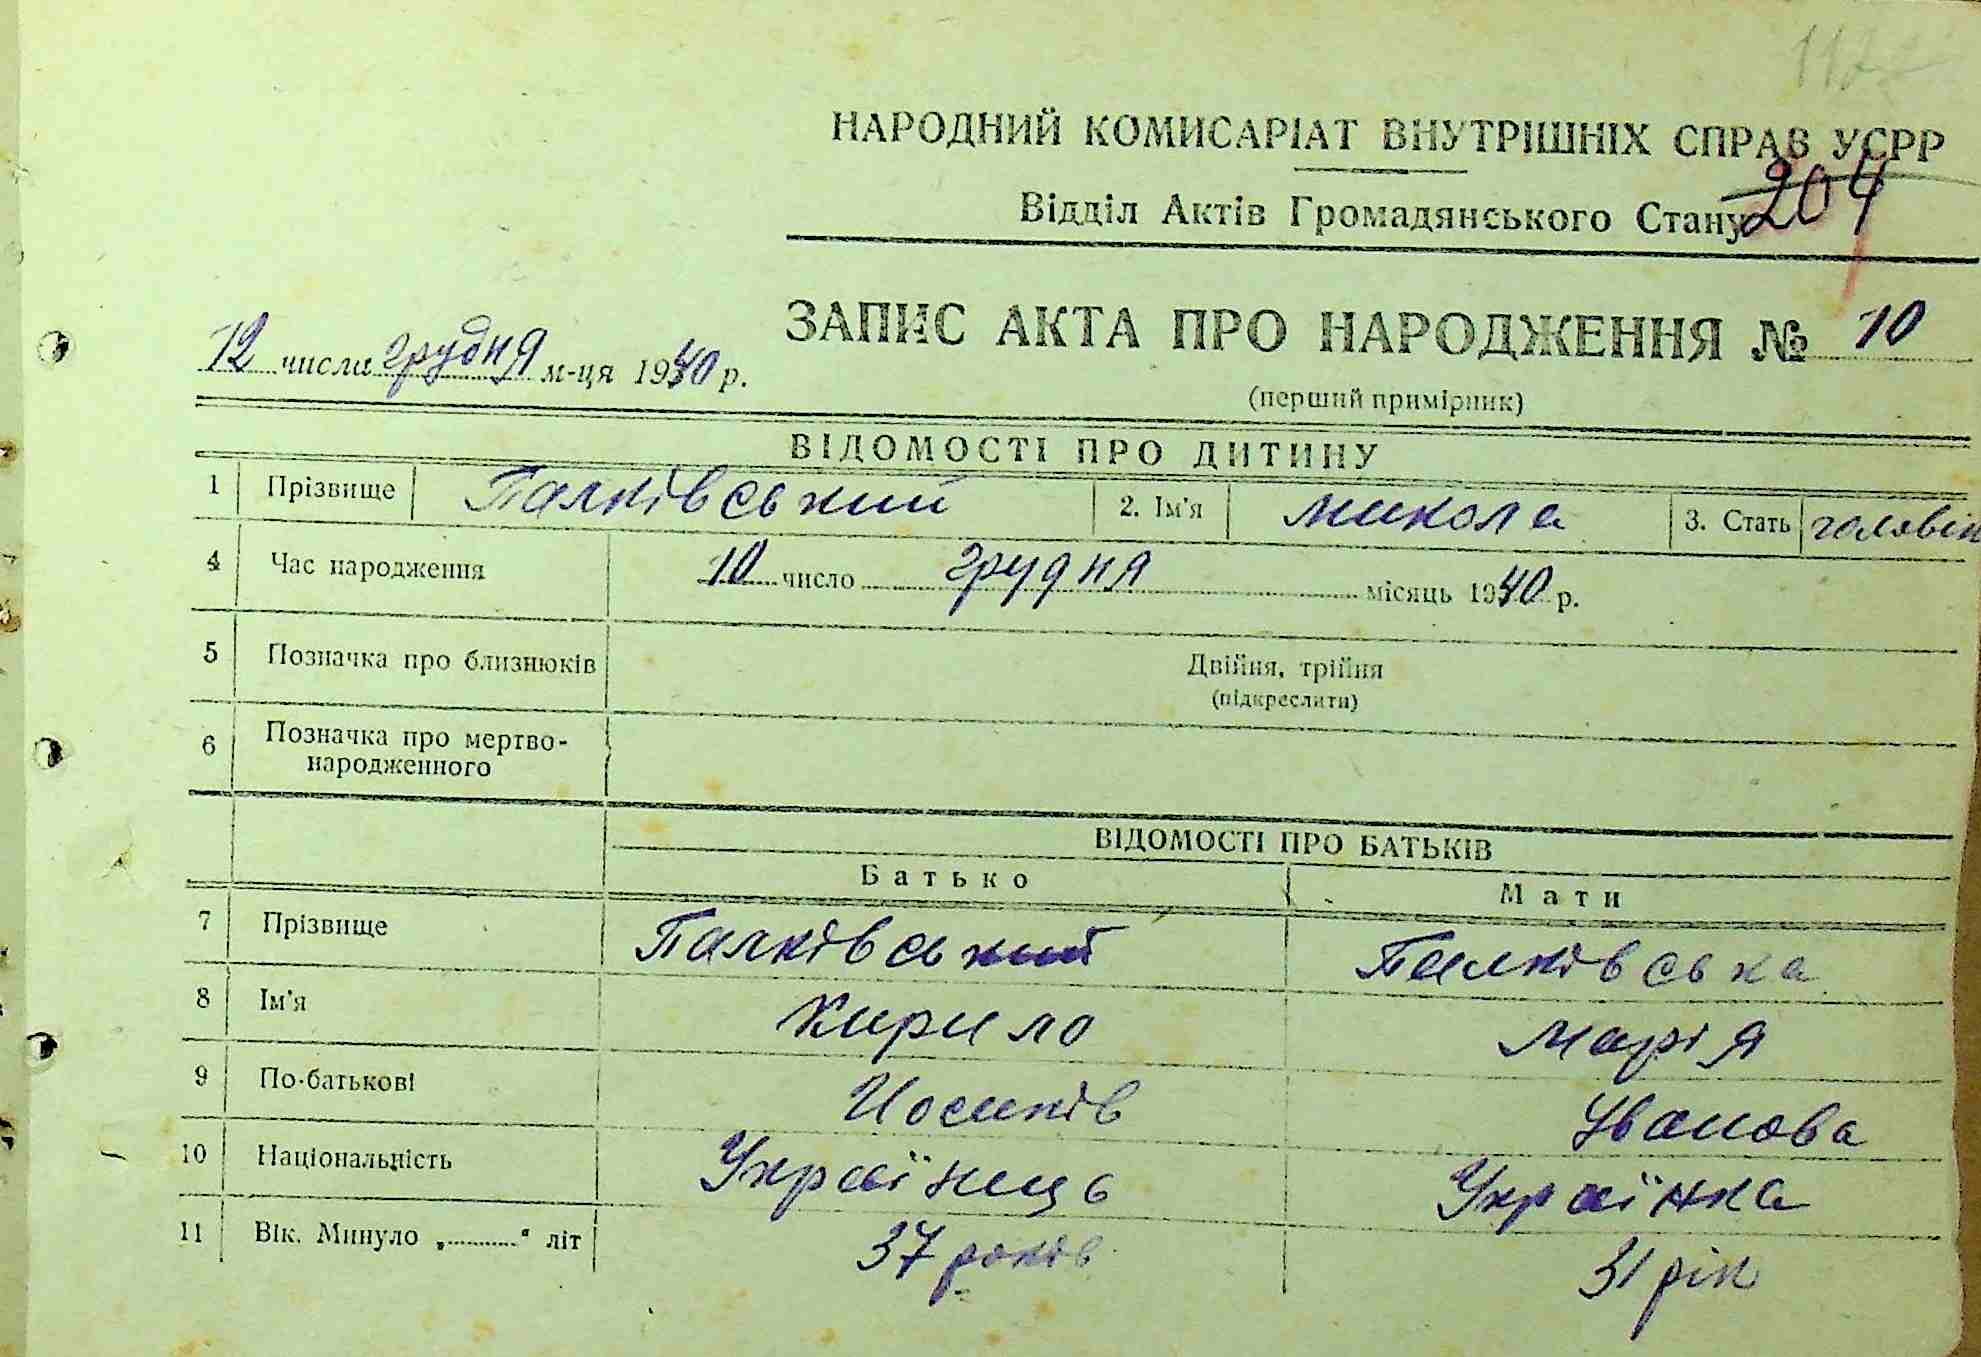 НАРОДНИЙ КОМИСАРІАТ ВНУТРІШНІХ СПРАВ УСРР
204
Відділ Актів Громадянського Стану
ЗАПИС АКТА ПРО НАРОДЖЕННЯ № 10
12 числа грудня м-ця 1940 р.
(перший примірник)
ВІДОМОСТІ ПРО ДИТИНУ
1 Прізвище Палківський 2. Ім'я Микола 3. Стать
4 Час народження 10 число грудня місяць 1940 р.
5 Позначка про близнюків Двійня, трійня
(підкреслити)
6 Позначка про мертво-
народженного
ВІДОМОСТІ ПРО БАТЬКІВ
Батько Мати
7 Прізвище Палківський Палківська
8 Ім'я Кирило Марія
9 По-батькові Иосипів Іванова
10 Національність Українець Українка
11 Вік. Минуло „..........“ літ 37 років 31 рік